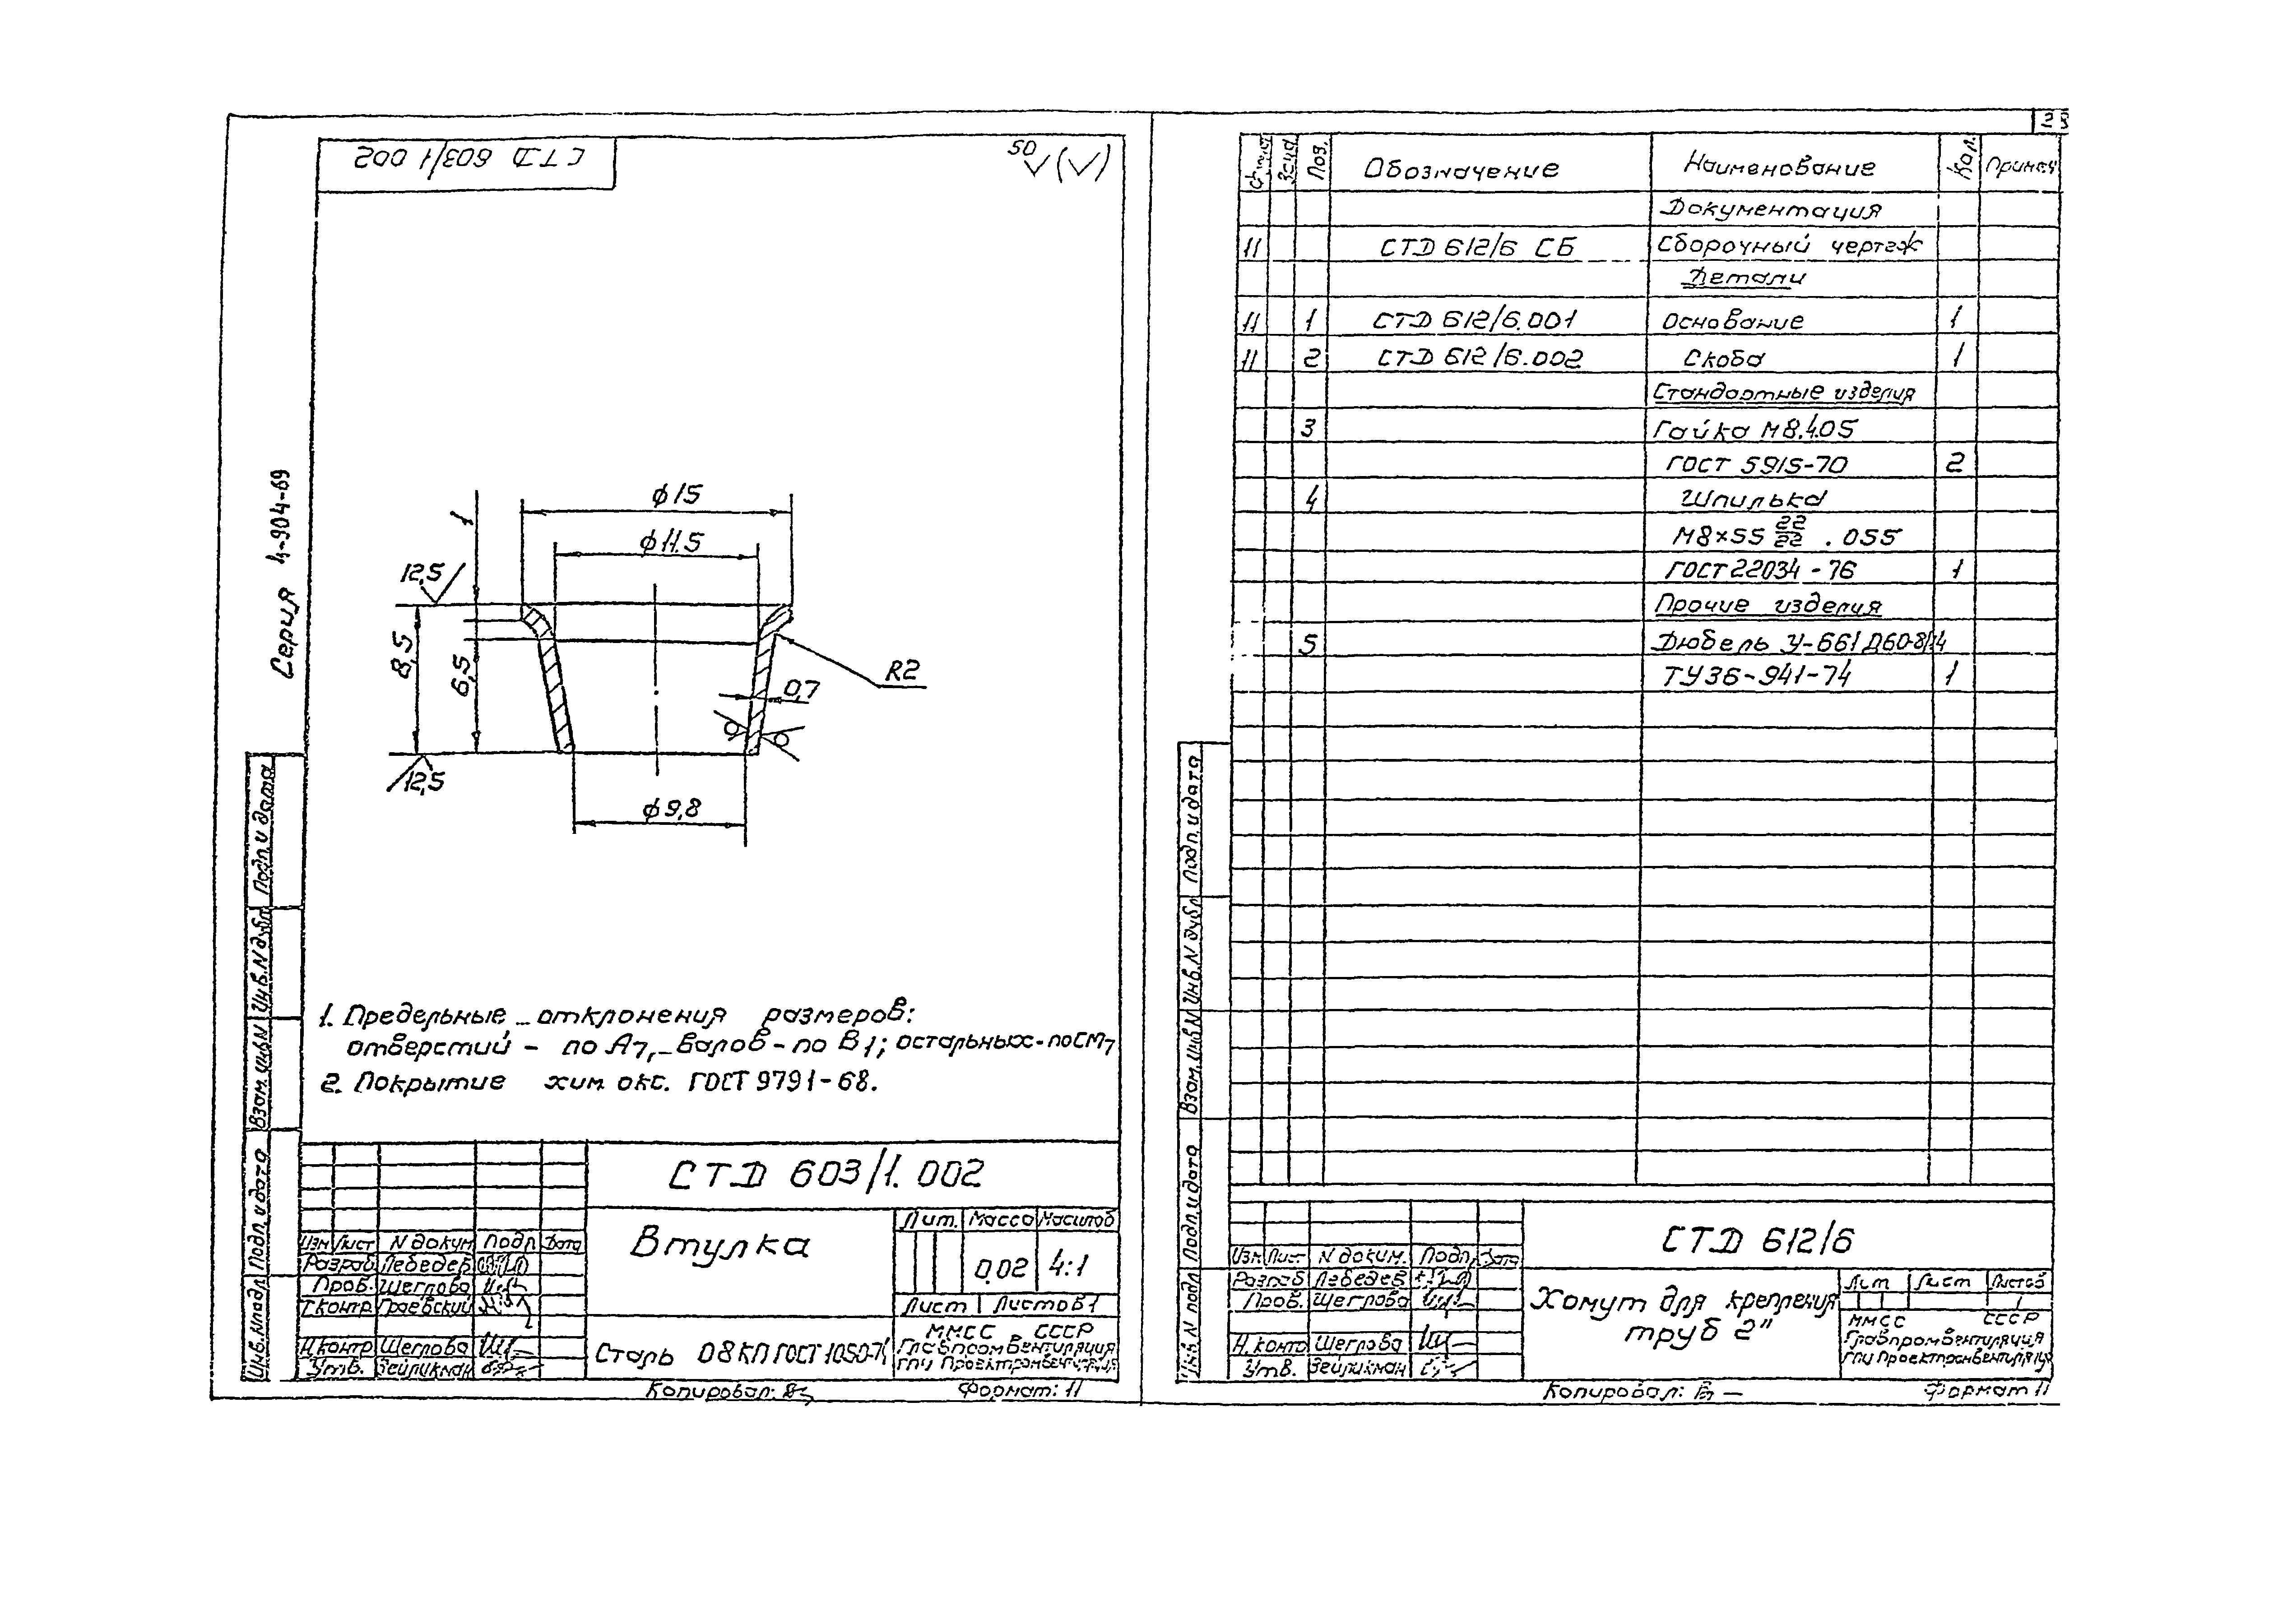 СТД 603/1 002
50 √(√)
Серия 4-904-69
⌀15
⌀11.5
1
12,5
8,5
6,5
R2
0,7
12,5
⌀9,8
1. Предельные отклонения размеров:
отверстий - по А7, валов - по В1; остальных - по СМ7
2. Покрытие хим. окс. ГОСТ 9791-68.
Подп. и дата
Инв. N дубл
Взам. инв N
Подп. и дата
Инв. N подл
СТД 603/1. 002
Втулка
Лит. Масса Масштаб
0.02 4:1
Лист Листов 1
Изм Лист N докум Подп Дата
Разраб Лебедев
Пров. Щеглова
Т.контр Граевский
Н.контр Щеглова
Утв. Зейликман
Сталь 08КП ГОСТ 1050-74
ММСС СССР
Главпромвентиляция
ГПИ Проектпромвентиляция
Копировал: Формат: 11
Поз. Обозначение Наименование Кол. Примеч
Документация
11 СТД 612/6 СБ Сборочный чертеж
Детали
11 1 СТД 612/6.001 Основание 1
11 2 СТД 612/6.002 Скоба 1
Стандартные изделия
3 Гайка М8.4.05
ГОСТ 5915-70 2
4 Шпилька
М8×55 22/22 . 055
ГОСТ 22034-76 1
Прочие изделия
5 Дюбель У-661 Д60-8/14
ТУ36-941-74 1
Подп. и дата
Инв. N дубл
Взам. инв N
Подп. и дата
Инв N подл
СТД 612/6
Изм Лист N докум. Подп. Дата
Разраб Лебедев
Пров. Щеглова
Н.контр Щеглова
Утв. Зейликман
Хомут для крепления
труб 2"
Лит Лист Листов
1
ММСС СССР
Главпромвентиляция
ГПИ Проектпромвентиляция
Копировал: Формат 11